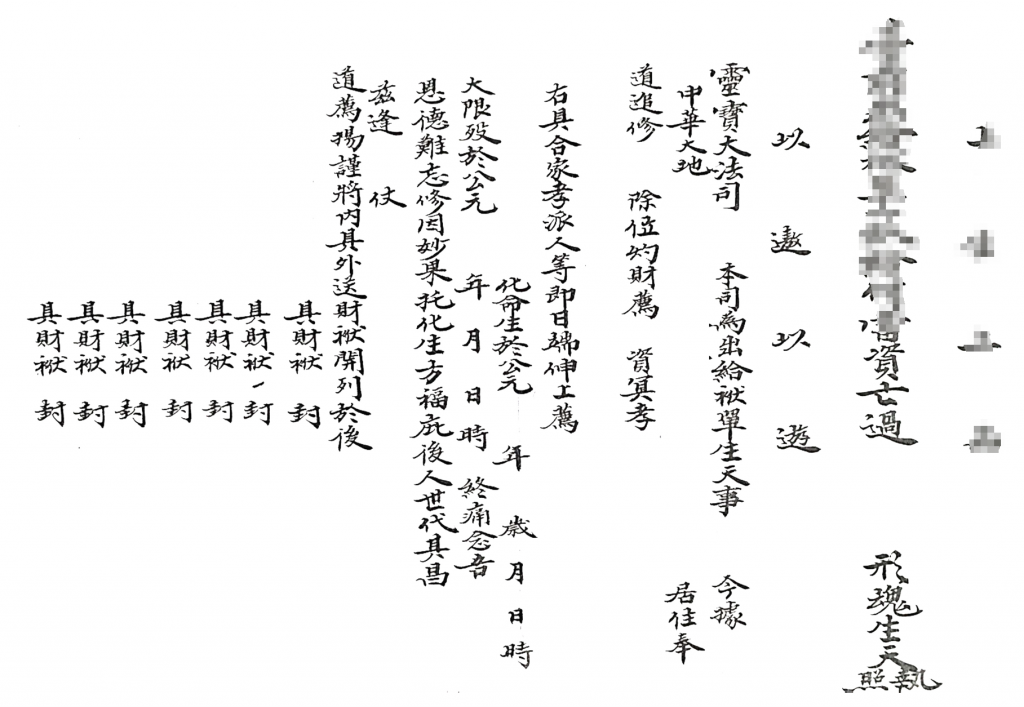 資亡過 形魂生天執照
以遨以遊
靈寶大法司 本司為出給袱單生天事 今據
中華大地 居住奉
道追修 除位灼財薦 資冥孝
右具合家孝派人等即日端伸上薦
化命生於公元 年 歲 月 日 時
大限歿於公元 年 月 日 時 終痛念吾
恩德難忘修因妙果托化生方福庇後人世代具昌
茲逢 仗
道薦揚謹將內具外送財袱開列於後
具財袱 封
具財袱 封
具財袱 封
具財袱 封
具財袱 封
具財袱 封
具財袱 封